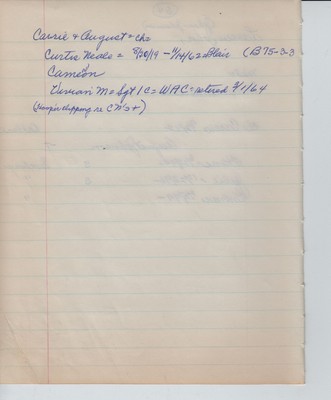 Carrie & August = chs
Curtis Neale = 8/20/19 - 9/14/62 Blair (B75-3-3
Cameron
Vivian M = Sgt 1 C = WAC = retired 8/1/64
( clipping re CNs+)